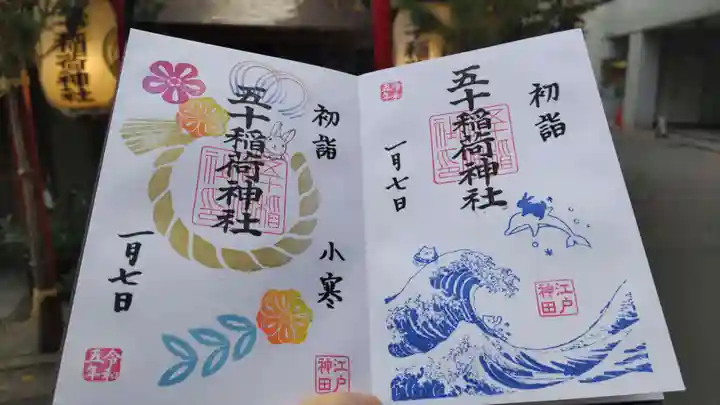 稲荷神社
初詣
五十稲荷神社
小寒
一月七日
令和
五年
江戸
神田
初詣
五十稲荷神社
一月七日
令和
五年
江戸
神田